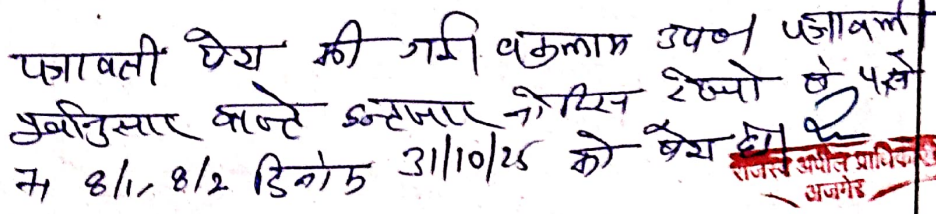 पत्रावली पेश की गयी वकुलाम उपo पत्रावली
पूर्वानुसार वास्ते इन्तजार नोटिस रेस्पो के
न 8/1, 8/2 दिनांक 31/10/25 को पेश हो
राजस्व अपील प्राधिकारी
अजमेर